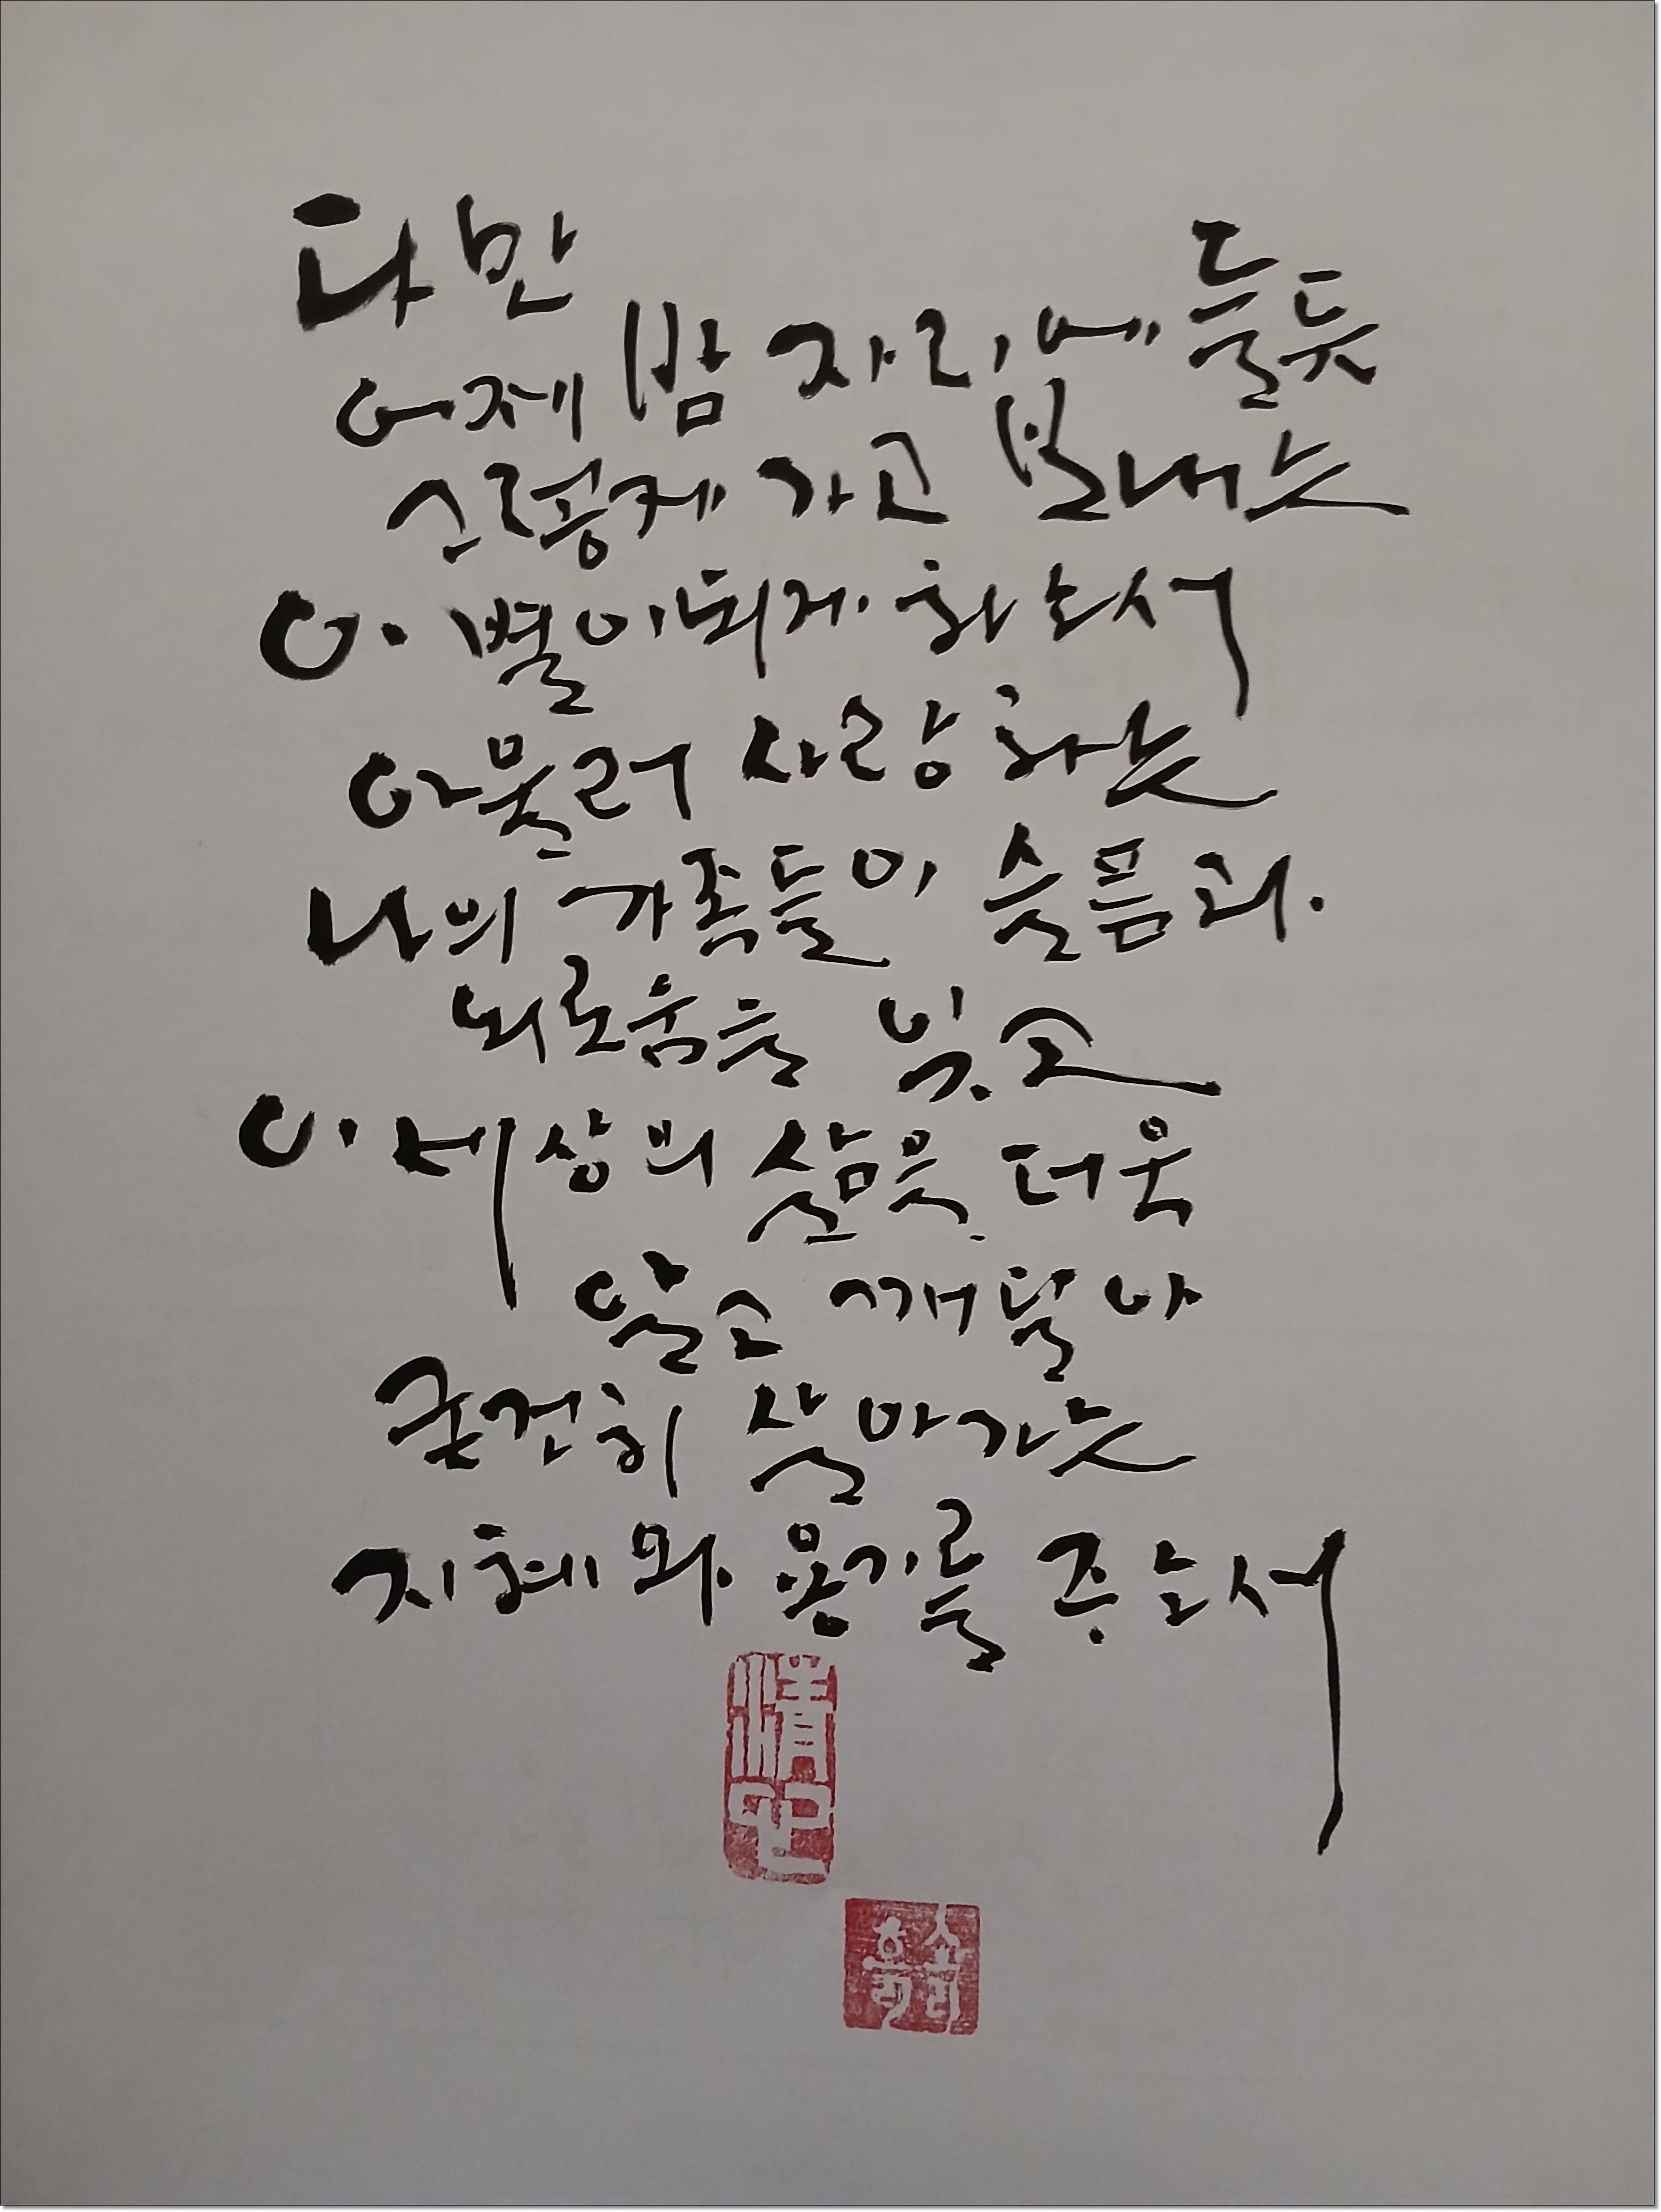 다만
어제 밤 자리에 들듯
그렇게 가고 보내는
이별이 되게 하소서
아울러 사랑하는
나의 가족들이 슬픔과
외로움을 잊고
이 세상의 삶을 더욱
알고 깨달아
굳건히 살아가는
지혜와 용기를 주소서